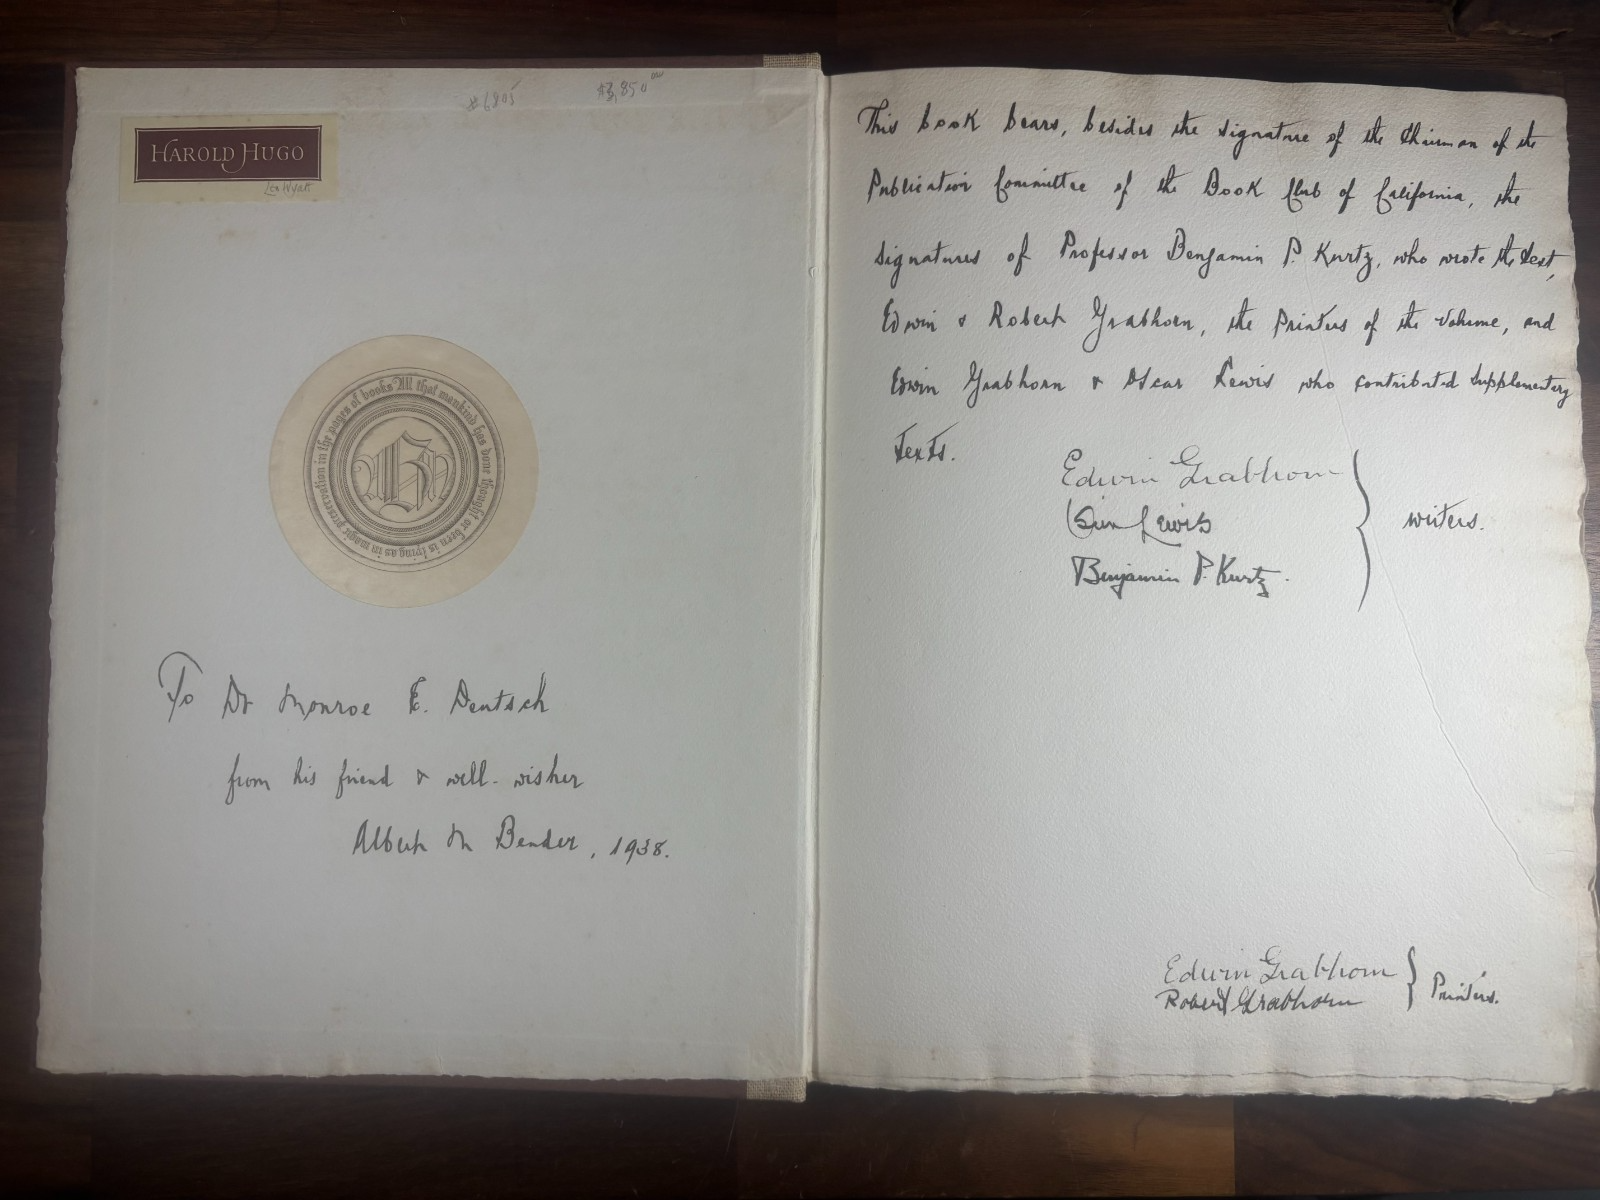 #6805
$3,850⁰⁰
HAROLD HUGO
Leo Wyatt
All that mankind has done thought or been is lying as in magic preservation in the pages of books
H
To Dr Monroe E. Deutsch
from his friend & well-wisher
Albert M Bender, 1938.
This book bears, besides the signature of the Chairman of the
Publication Committee of the Book Club of California, the
signatures of Professor Benjamin P. Kurtz, who wrote the text,
Edwin & Robert Grabhorn, the Printers of the volume, and
Edwin Grabhorn & Oscar Lewis who contributed supplementary
texts.
Edwin Grabhorn
Oscar Lewis
Benjamin P. Kurtz.
writers.
Edwin Grabhorn
Robert Grabhorn
Printers.